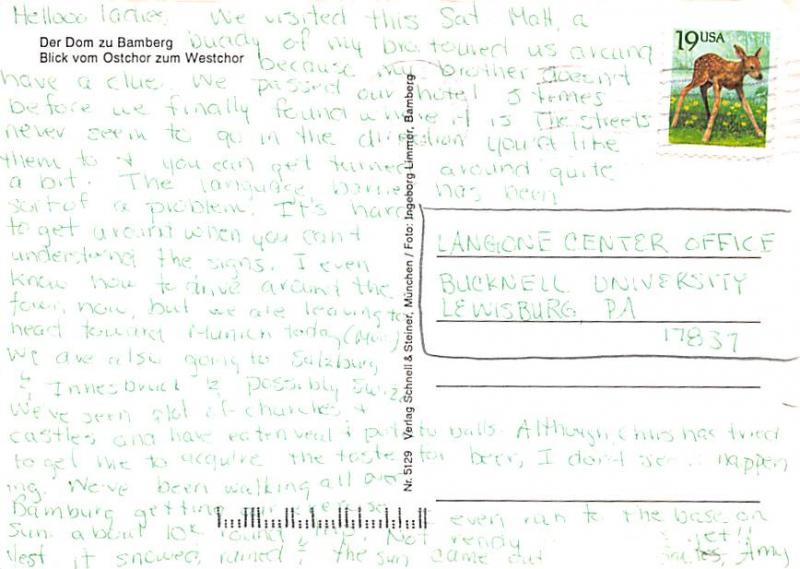 Hellooo ladies, We visited this Sat Matt, a
Der Dom zu Bamberg
Blick vom Ostchor zum Westchor
buddy of my bro toured us around
because my brother doesn't
have a clue. We passed our hotel 5 times
before we finally found where it is The streets
never seem to go in the direction you'd like
them to & you can get turned around quite
a bit. The language barrier has been
sort of a problem. It's hard
to get around when you can't
understand the signs. I even
know how to drive around the
town now, but we are leaving to
head toward Munich today (Mon)
We are also going to Salzburg
& Innesbruck & possibly Switz.
We've seen alot of churches &
castles and have eaten veal & potato balls. Although, Chris has tried
to get me to acquire the taste for beer, I don't see happen
ing. We've been walking all over
Bamburg getting exercise I even ran to the base on
Sun. about 10K round trip. Not ready yet!!
Yest it snowed, rained & the sun came out Amy
19USA
Nr. 5129 Verlag Schnell & Steiner, München / Foto: Ingeborg Limmer, Bamberg
LANGONE CENTER OFFICE
BUCKNELL UNIVERSITY
LEWISBURG PA
17837